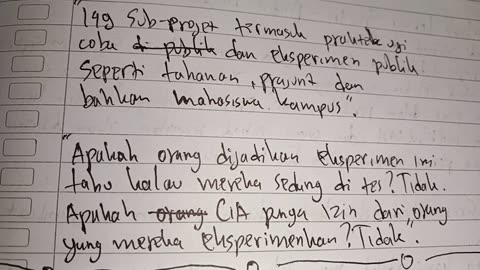 "149 Sub-projet termasuk praktek uji
coba di publik dan eksperimen publik
Seperti tahanan, prajurit dan
bahkan mahasiswa kampus".
"Apakah orang dijadikan eksperimen ini
tahu kalau mereka sedang di tes? Tidak.
Apakah orang CIA punya izin dari orang
yang mereka eksperimenkan? Tidak".